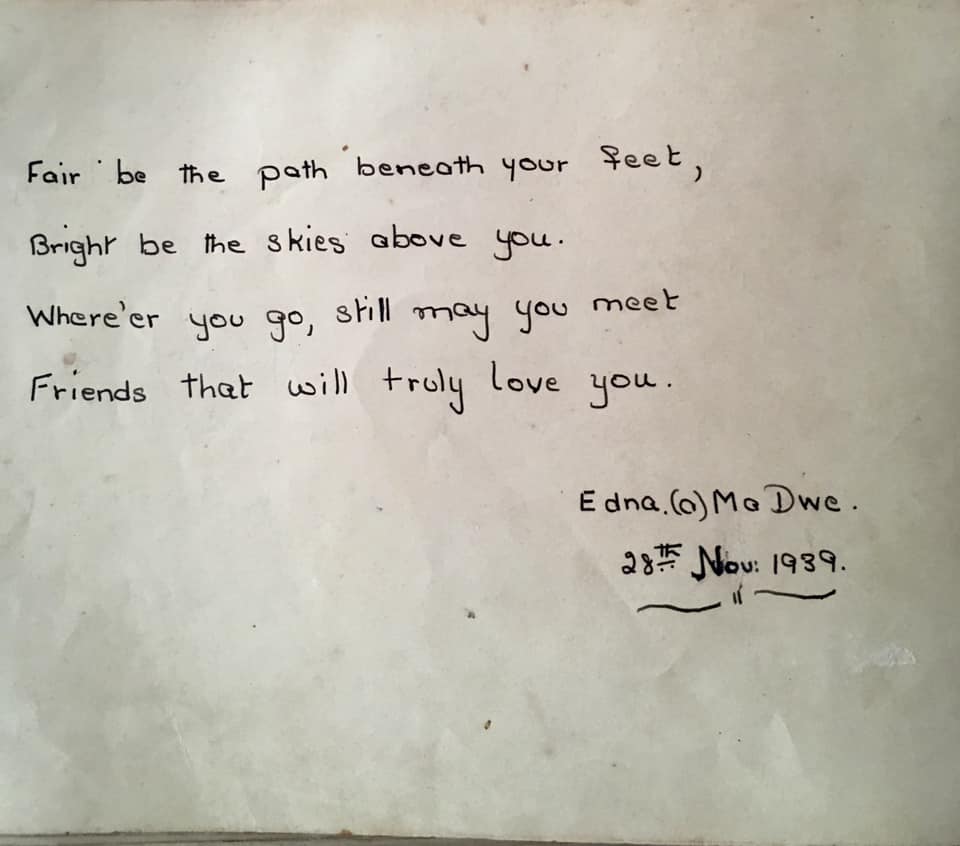 Fair be the path beneath your feet,
Bright be the skies above you.
Where'er you go, still may you meet
Friends that will truly love you.
Edna.(a) Ma Dwe.
28th Nov: 1939.